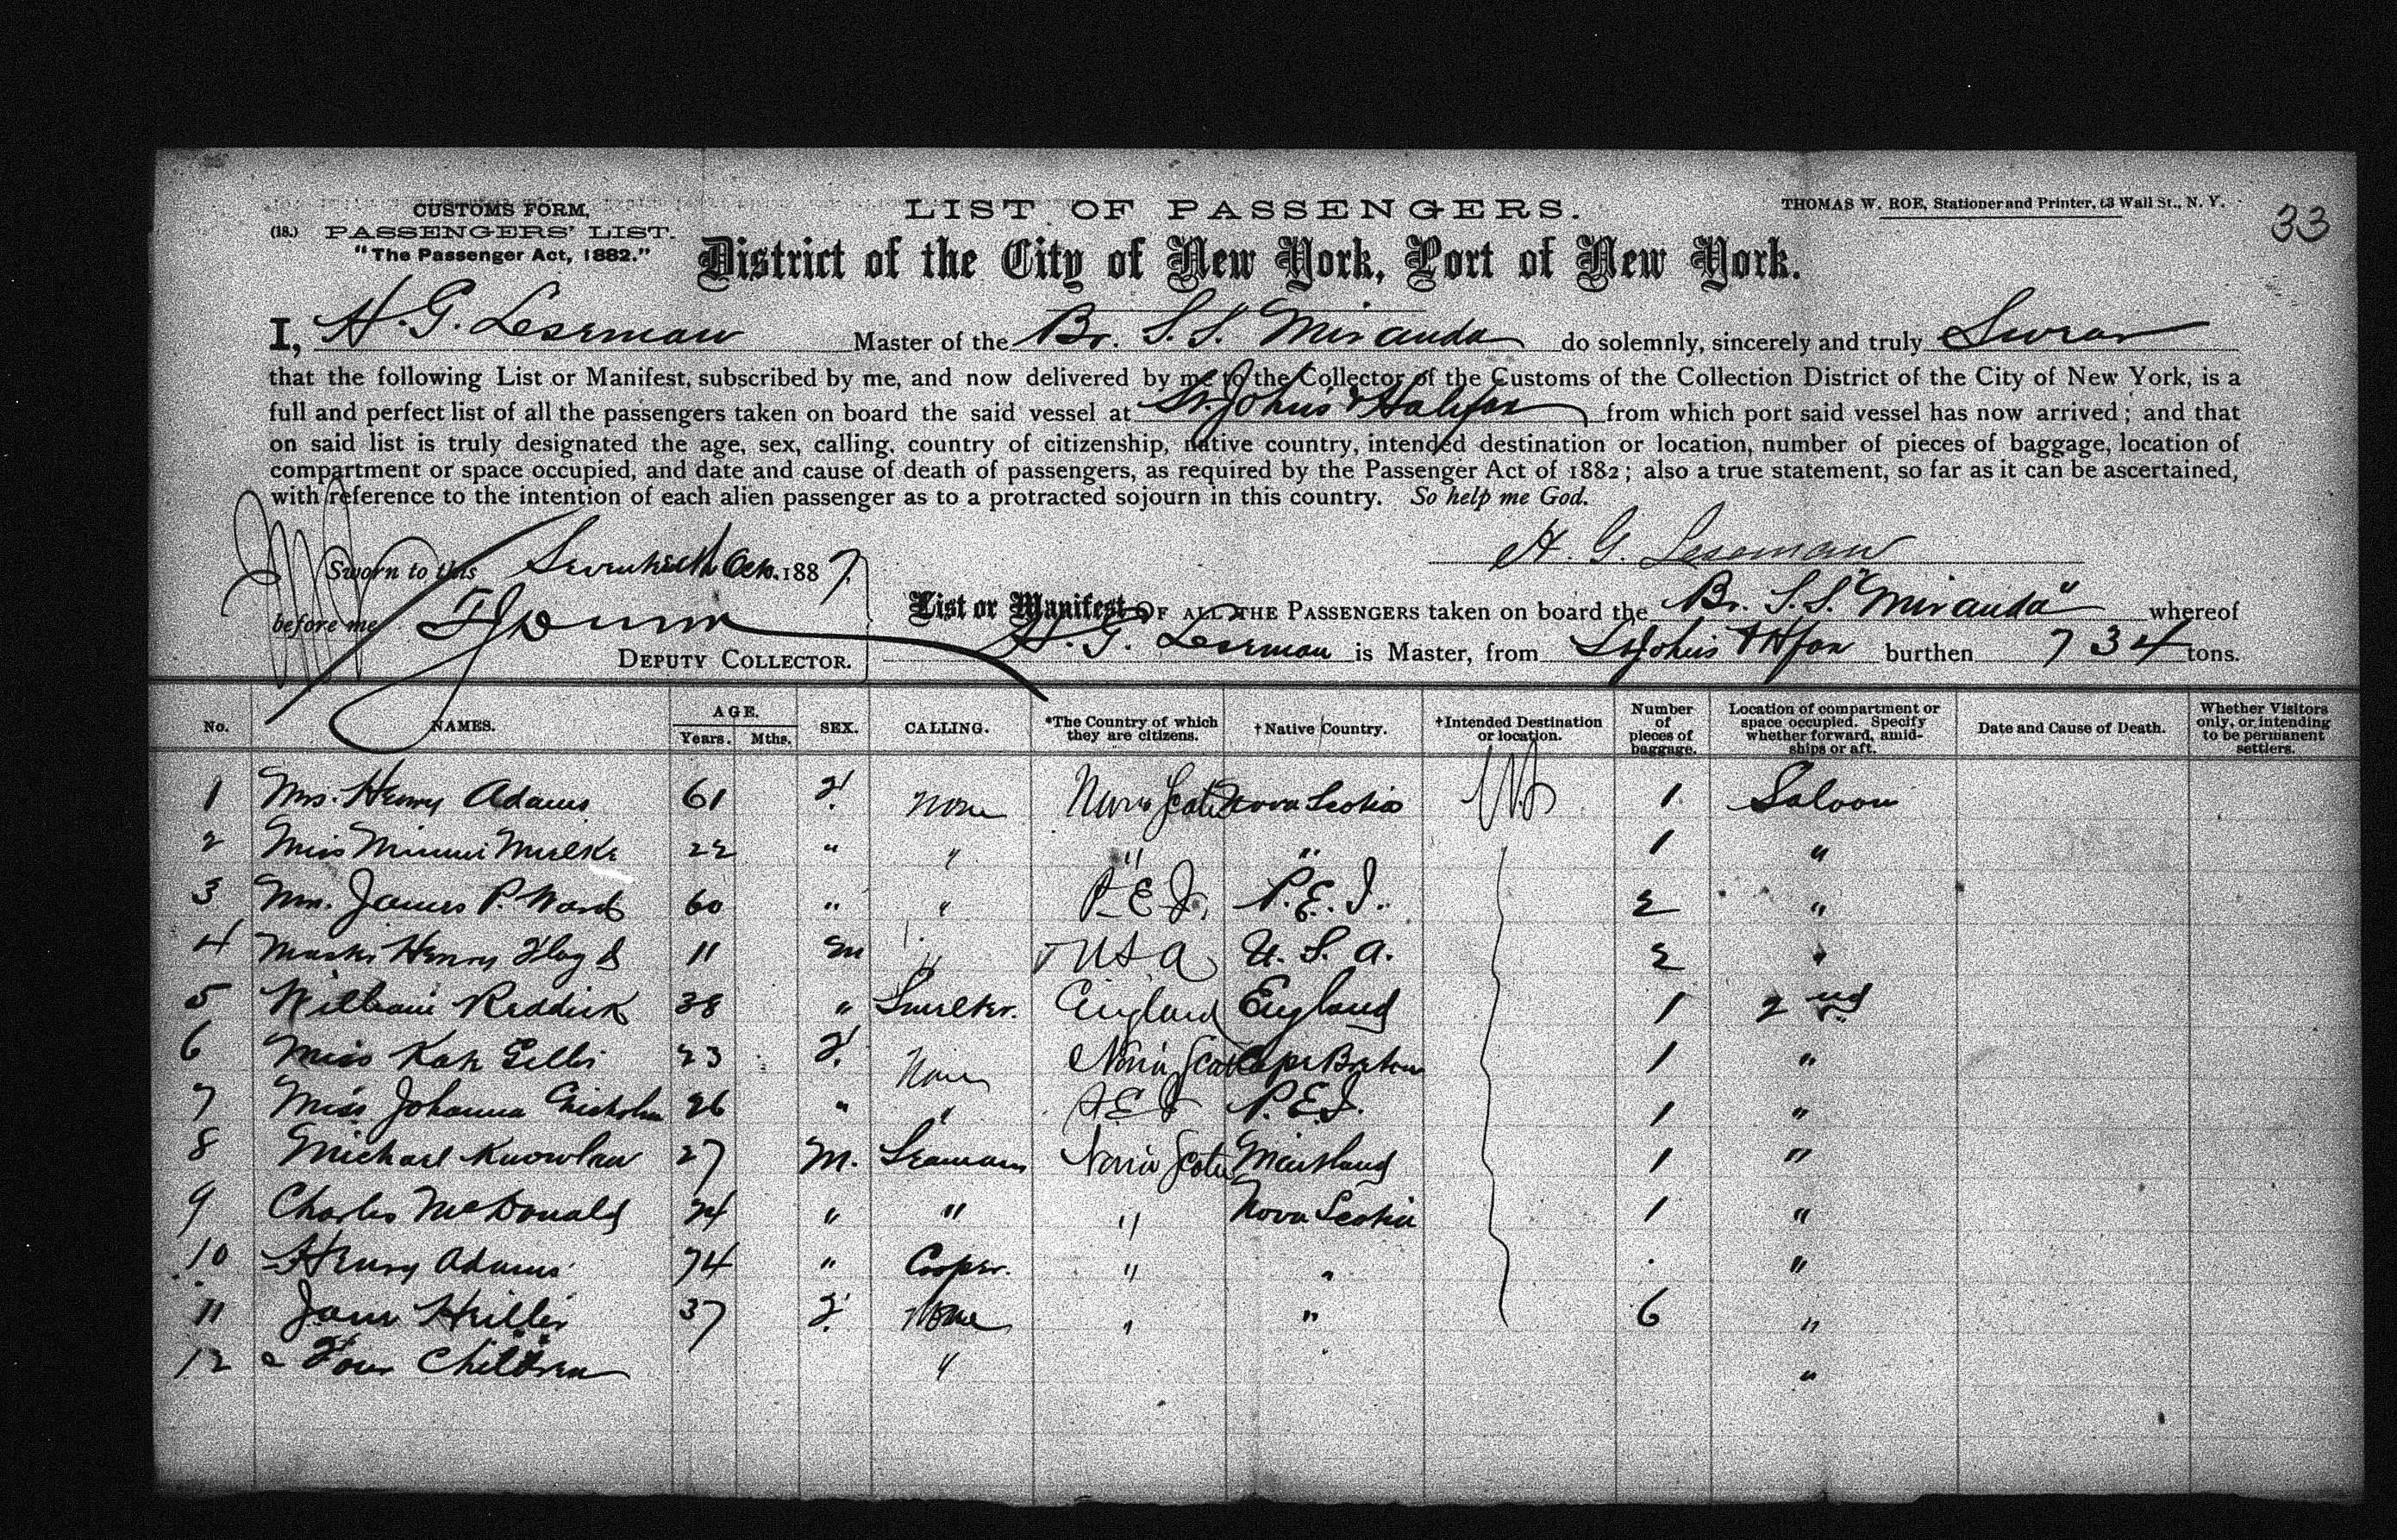 CUSTOMS FORM,
(18.) PASSENGERS' LIST.
"The Passenger Act, 1882."
LIST OF PASSENGERS.
District of the City of New York, Port of New York.
THOMAS W. ROE, Stationer and Printer, 63 Wall St., N. Y.
33
I, H. G. Leseman Master of the Br. S.S. Miranda do solemnly, sincerely and truly Swear
that the following List or Manifest, subscribed by me, and now delivered by me to the Collector of the Customs of the Collection District of the City of New York, is a
full and perfect list of all the passengers taken on board the said vessel at St. Johns & Halifax from which port said vessel has now arrived; and that
on said list is truly designated the age, sex, calling, country of citizenship, native country, intended destination or location, number of pieces of baggage, location of
compartment or space occupied, and date and cause of death of passengers, as required by the Passenger Act of 1882; also a true statement, so far as it can be ascertained,
with reference to the intention of each alien passenger as to a protracted sojourn in this country. So help me God.
H. G. Leseman
Sworn to this Oct. 1887.
before me
DEPUTY COLLECTOR.
List or Manifest OF ALL THE PASSENGERS taken on board the Br. S.S. "Miranda" whereof
H. G. Leseman is Master, from St Johns & Hfax burthen 734 tons.
No. NAMES. AGE. Years. Mths. SEX. CALLING. *The Country of which they are citizens. †Native Country. †Intended Destination or location. Number of pieces of baggage. Location of compartment or space occupied. Specify whether forward, amidships or aft. Date and Cause of Death. Whether Visitors only, or intending to be permanent settlers.
1 Mrs. Henry Adams 61 F. None Nova Scotia Nova Scotia 1 Saloon
2 Miss Minnie 22 " " " " 1 "
3 Mrs. James P. Ward 60 " " P.E.I. P.E.I. 2 "
4 Master Henry Floyd 11 M " USA U.S.A. 2 "
5 William Reddick 38 " Smelter. England England 1 2nd
6 Miss Kate Gillis 23 F. None Nova Scotia Cape Breton 1 "
7 Miss Johanna Chisholm 26 " " P.E.I. P.E.I. 1 "
8 Michael Knowlan 27 M. Seaman Nova Scotia Maitland 1 "
9 Charles McDonald 24 " " " Nova Scotia 1 "
10 Henry Adams 74 " Cooper. " " "
11 Jane Hillis 37 F. None " " 6 "
12 & Four Children " "